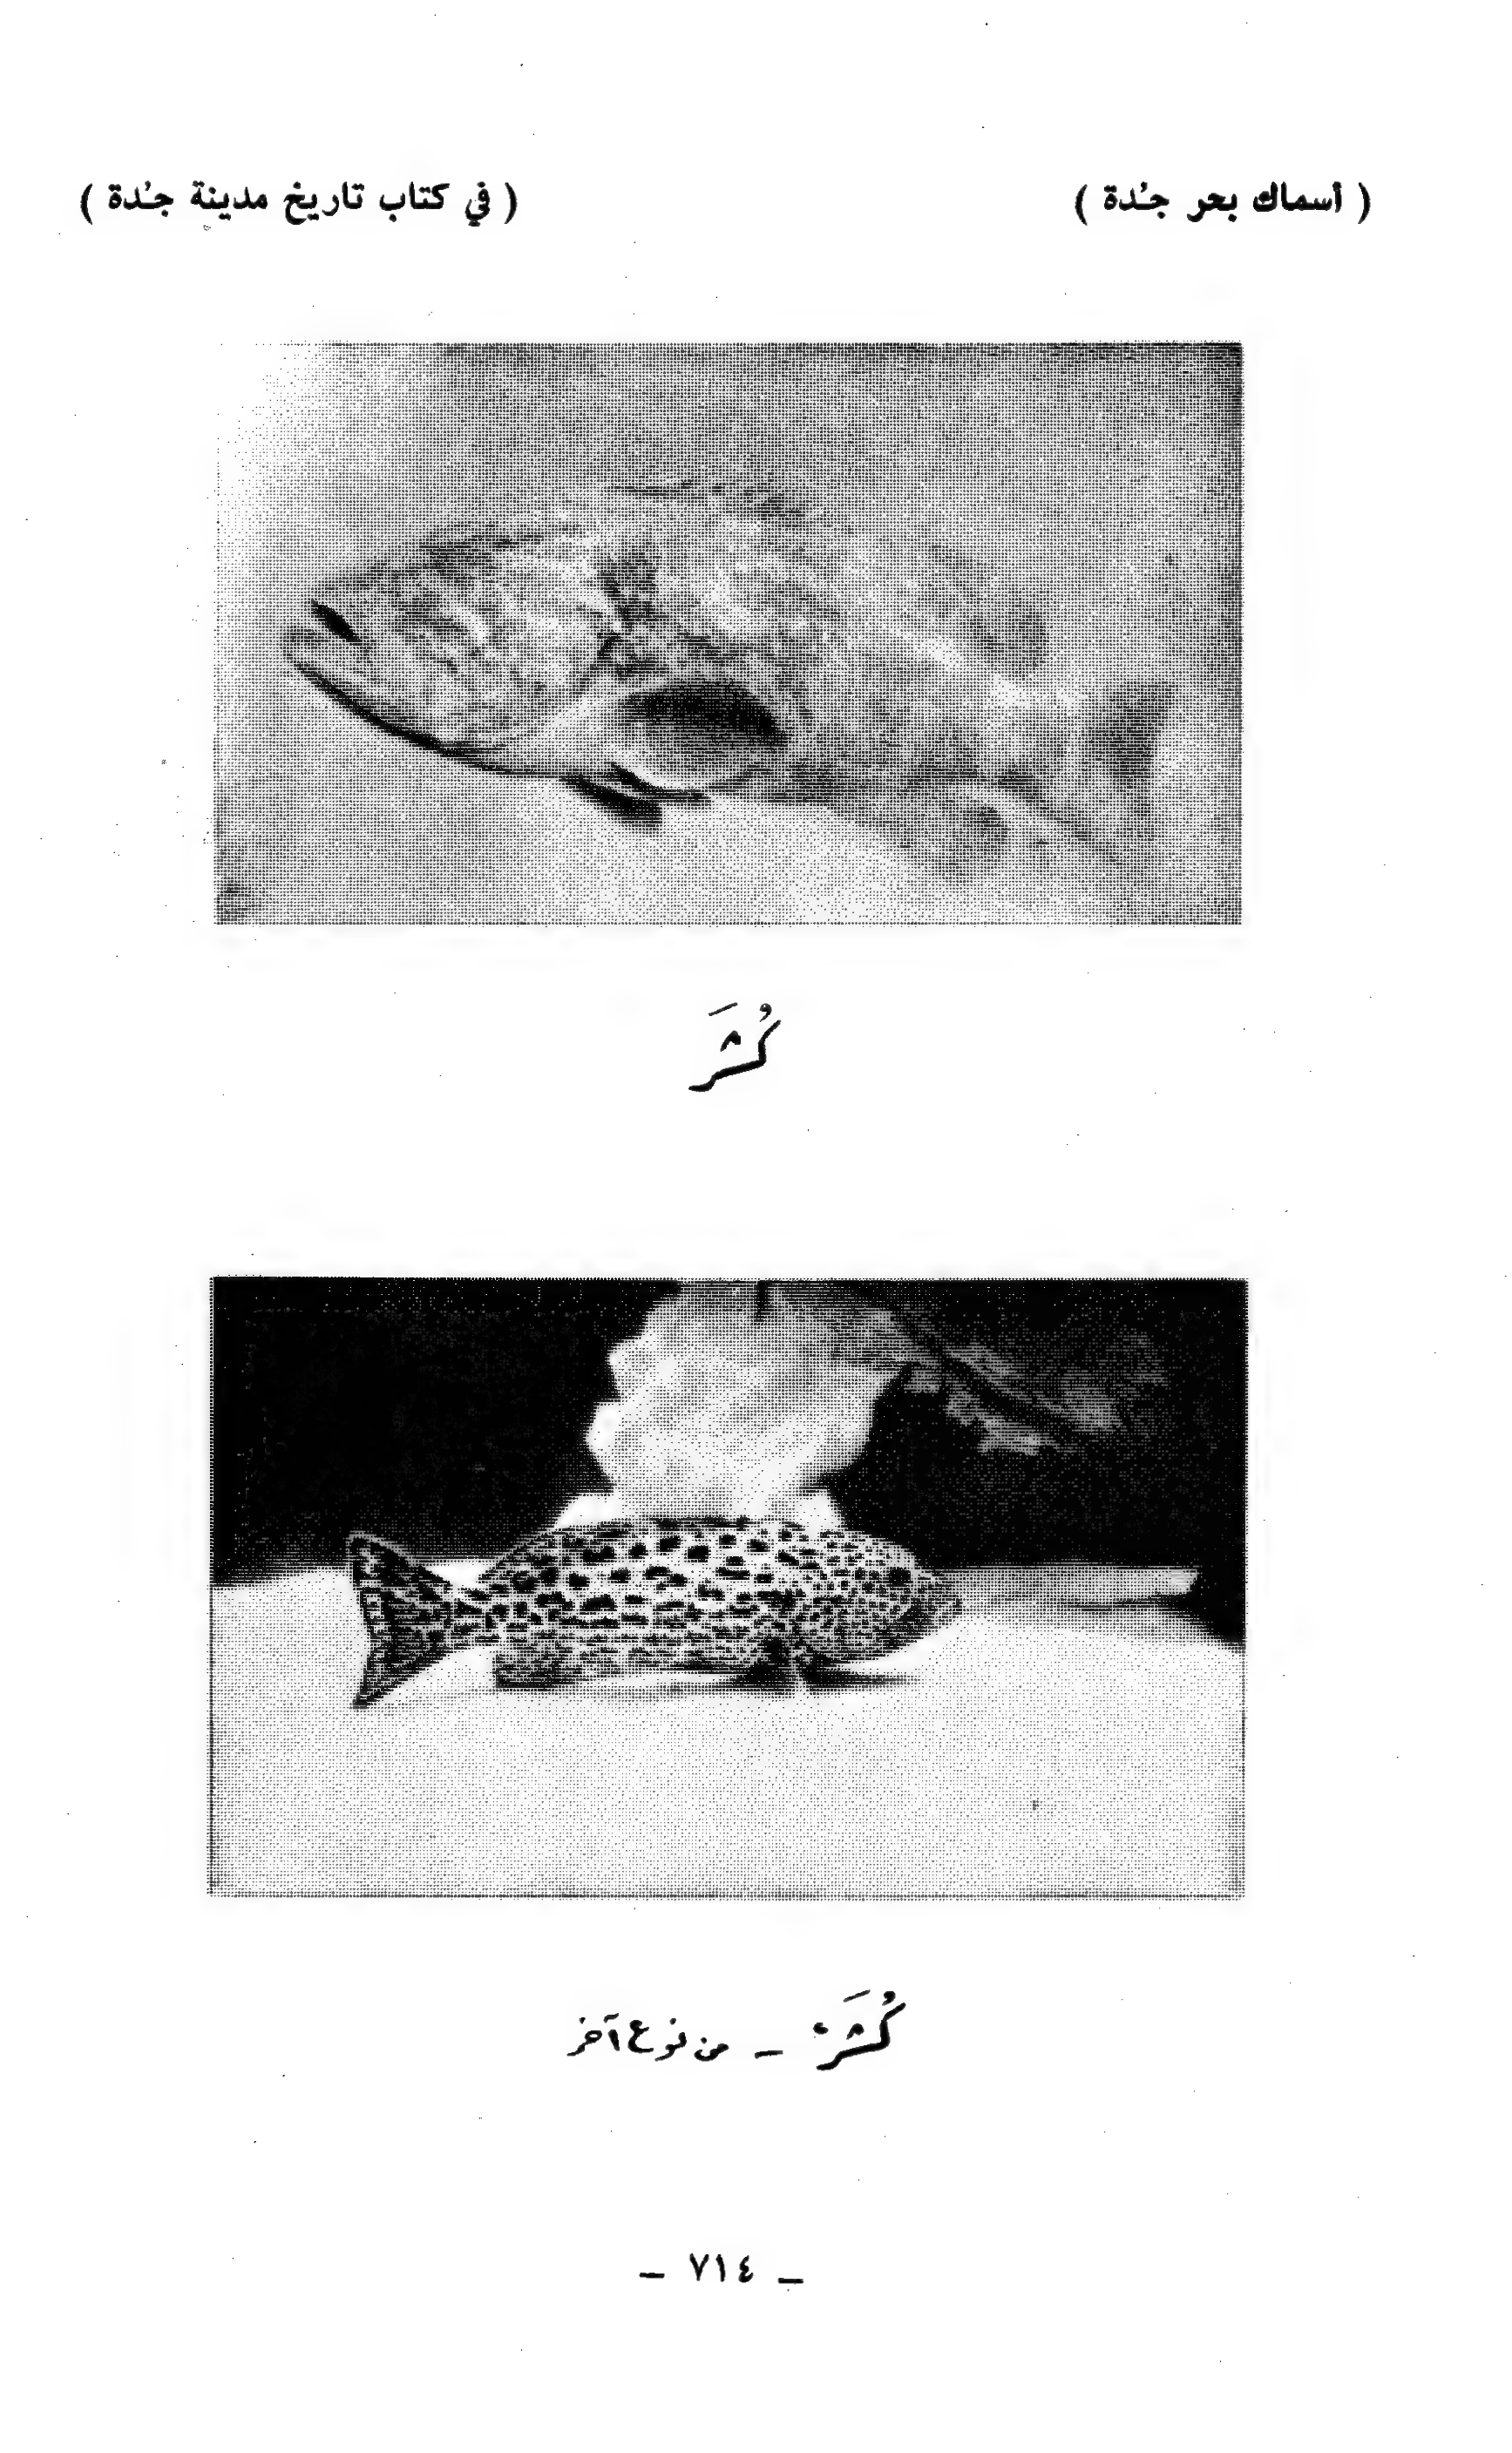 ( أسماك بحر جُدة ) ( في كتاب تاريخ مدينة جُدة )
كُشَر
كُشَر - من نوع آخر
- ٧١٤ -